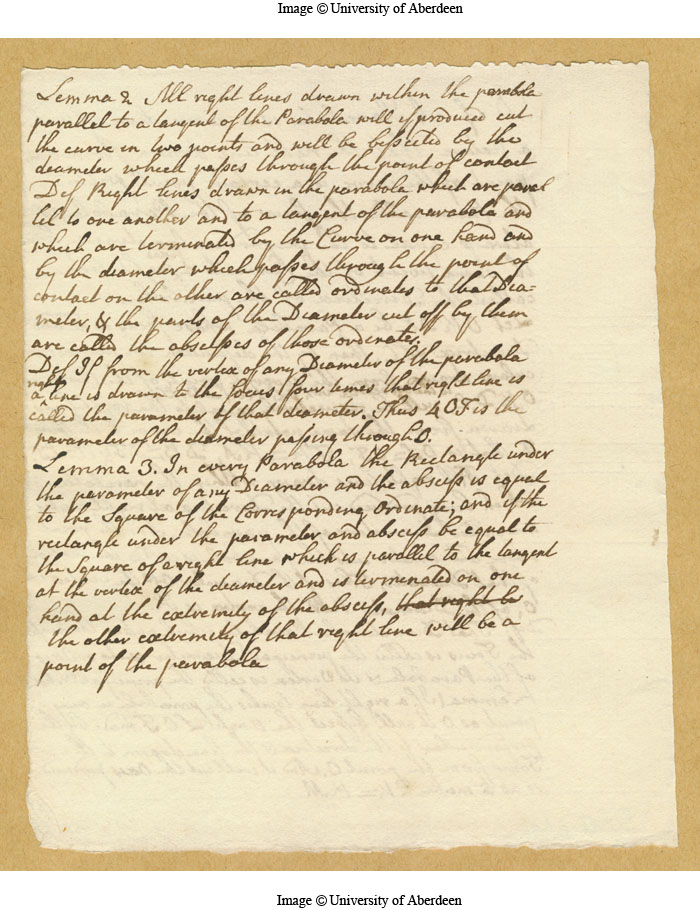 Image © University of Aberdeen
Lemma 2 All right lines drawn within the parabola
parallel to a tangent of the Parabola will if produced cut
the curve in two points and will be bissected by the
deameter which passes through the point of contact
Def Right lines drawn in the parabola which are paral
lel to one another and to a tangent of the parabola and
which are terminated by the Curve on one hand and
by the diameter which passes through the point of
contact on the other are called ordinates to that Dia-
meter, & the parts of the Diameter cut off by them
are called the abscisses of those ordinates.
Def If from the vertex of any Diameter of the parabola
right
a line is drawn to the focus four times that right line is
called the parameter of that diameter. Thus 4OF is the
parameter of the diameter passing through O.
Lemma 3. In every Parabola the Rectangle under
the parameter of any Diameter and the absciss is equal
to the Square of the Corresponding Ordinate; and if the
rectangle under the parameter and absciss be equal to
the Square of a right line which is parallel to the tangent
at the vertex of the diameter and is terminated on one
hand at the extremity of the absciss, that right be
the other extremity of that right line will be a
point of the parabola
Image © University of Aberdeen